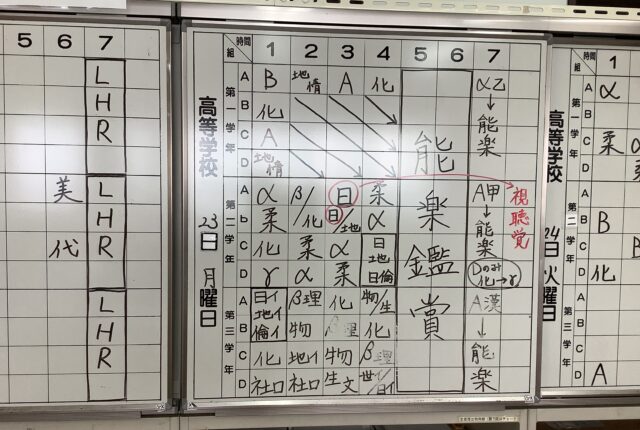 5 6 7
LHR
美
LHR
代
LHR
高等学校
23日 月曜日
時間 1 2 3 4 5 6 7
組
第一学年
A B 地情 A 化 α乙
B 化 ↓
C A 能
D 地情 楽
第二学年
A α β/化 日 柔 A甲
b 柔 日/地 α ↓
C 化 柔 α 日地日倫 能楽
D γ α 柔 Dのみ 化→γ
視聴覚
第三学年
A 日イ地イ倫イ β理 化 物/生 A漢
B 物 β理 化 ↓
C 化 地イ 物 β理 能
D 社ロ 社ロ 生文 世イ/日イ 楽
能楽鑑賞
高等学校
24日 火曜日
時間 1
組
第一学年
A α
B
C 柔
D
第二学年
A
B B
C
D 化
第三学年
A
B
C
D A